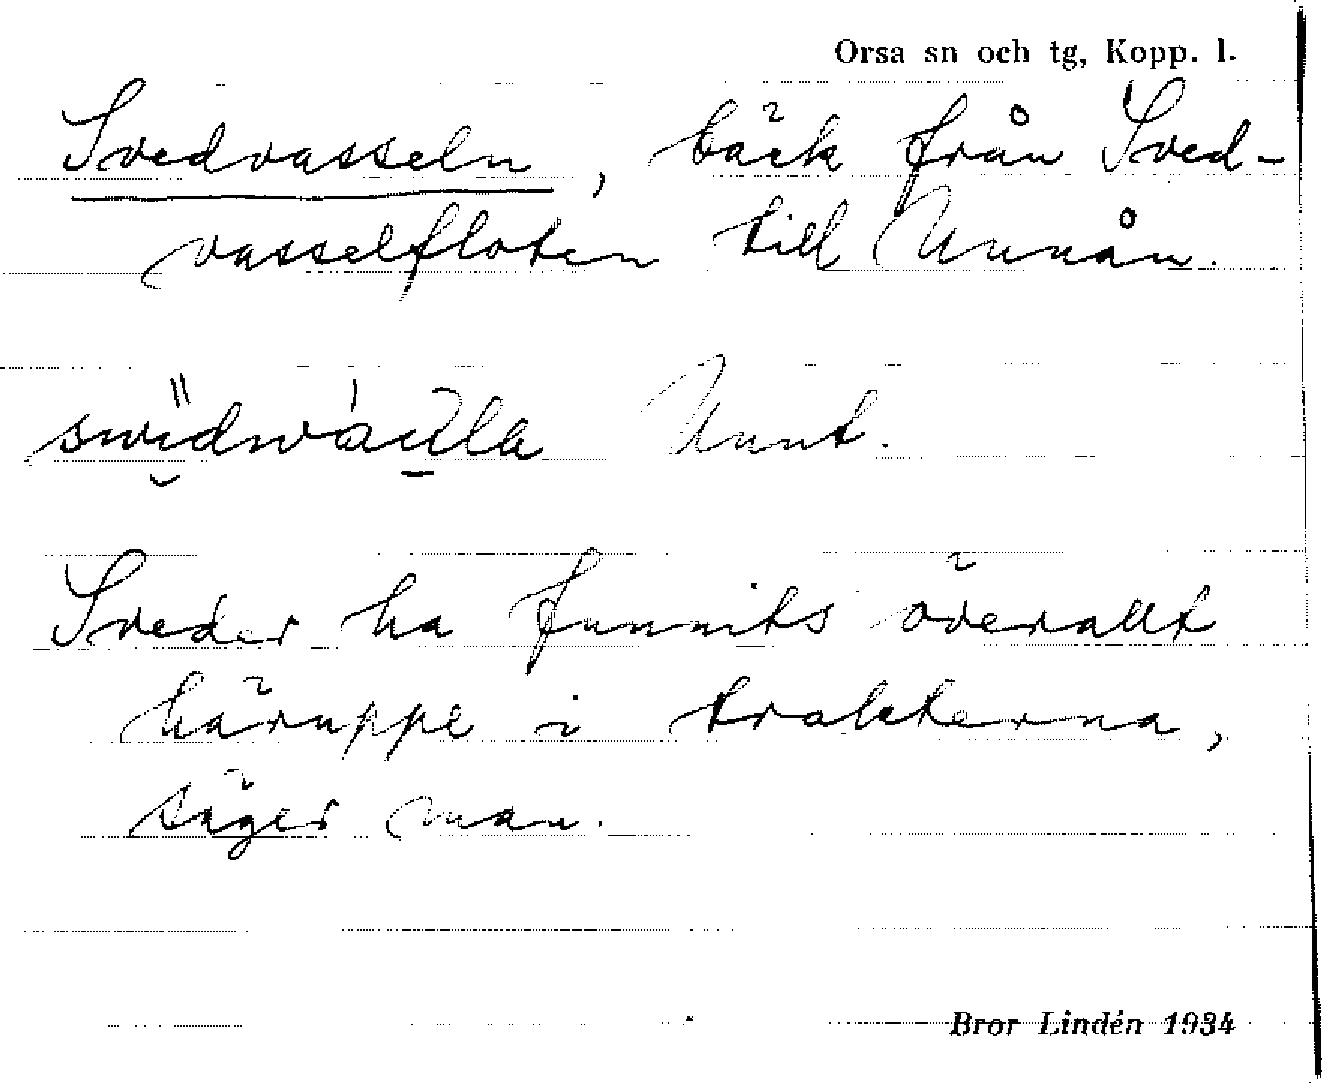 Orsa sn och tg, Kopp. l.
Svedvasseln, bäck från Sved-
vasselfloten till Unnån.
Unnt.
Sveder ha funnits överallt
häruppe i trakterna,
säger man.
Bror Lindén 1934